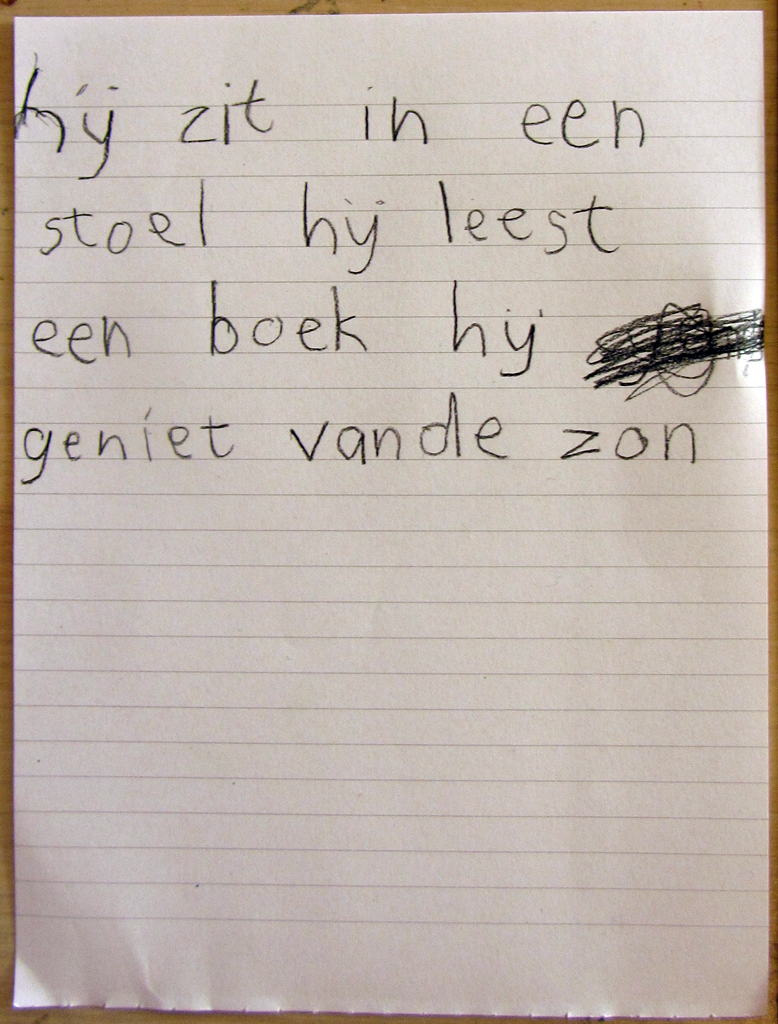 hij zit in een
stoel hij leest
een boek hij
geniet vande zon